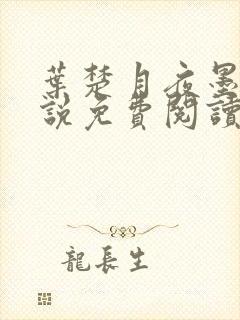 葉楚月夜墨
說免費閱讀
龍長生